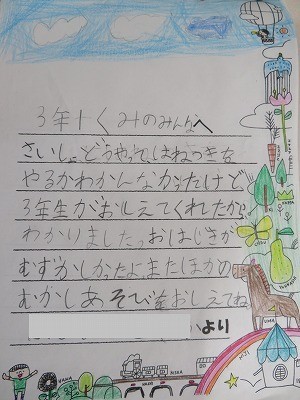 3年1くみのみんなへ
さいしょ、どうやって、はねつきを
やるかわかんなかったけど
3年生がおしえてくれたから
わかりました。おはじきが
むずかしかったよ。またほかの
むかしあそびをおしえてね
より